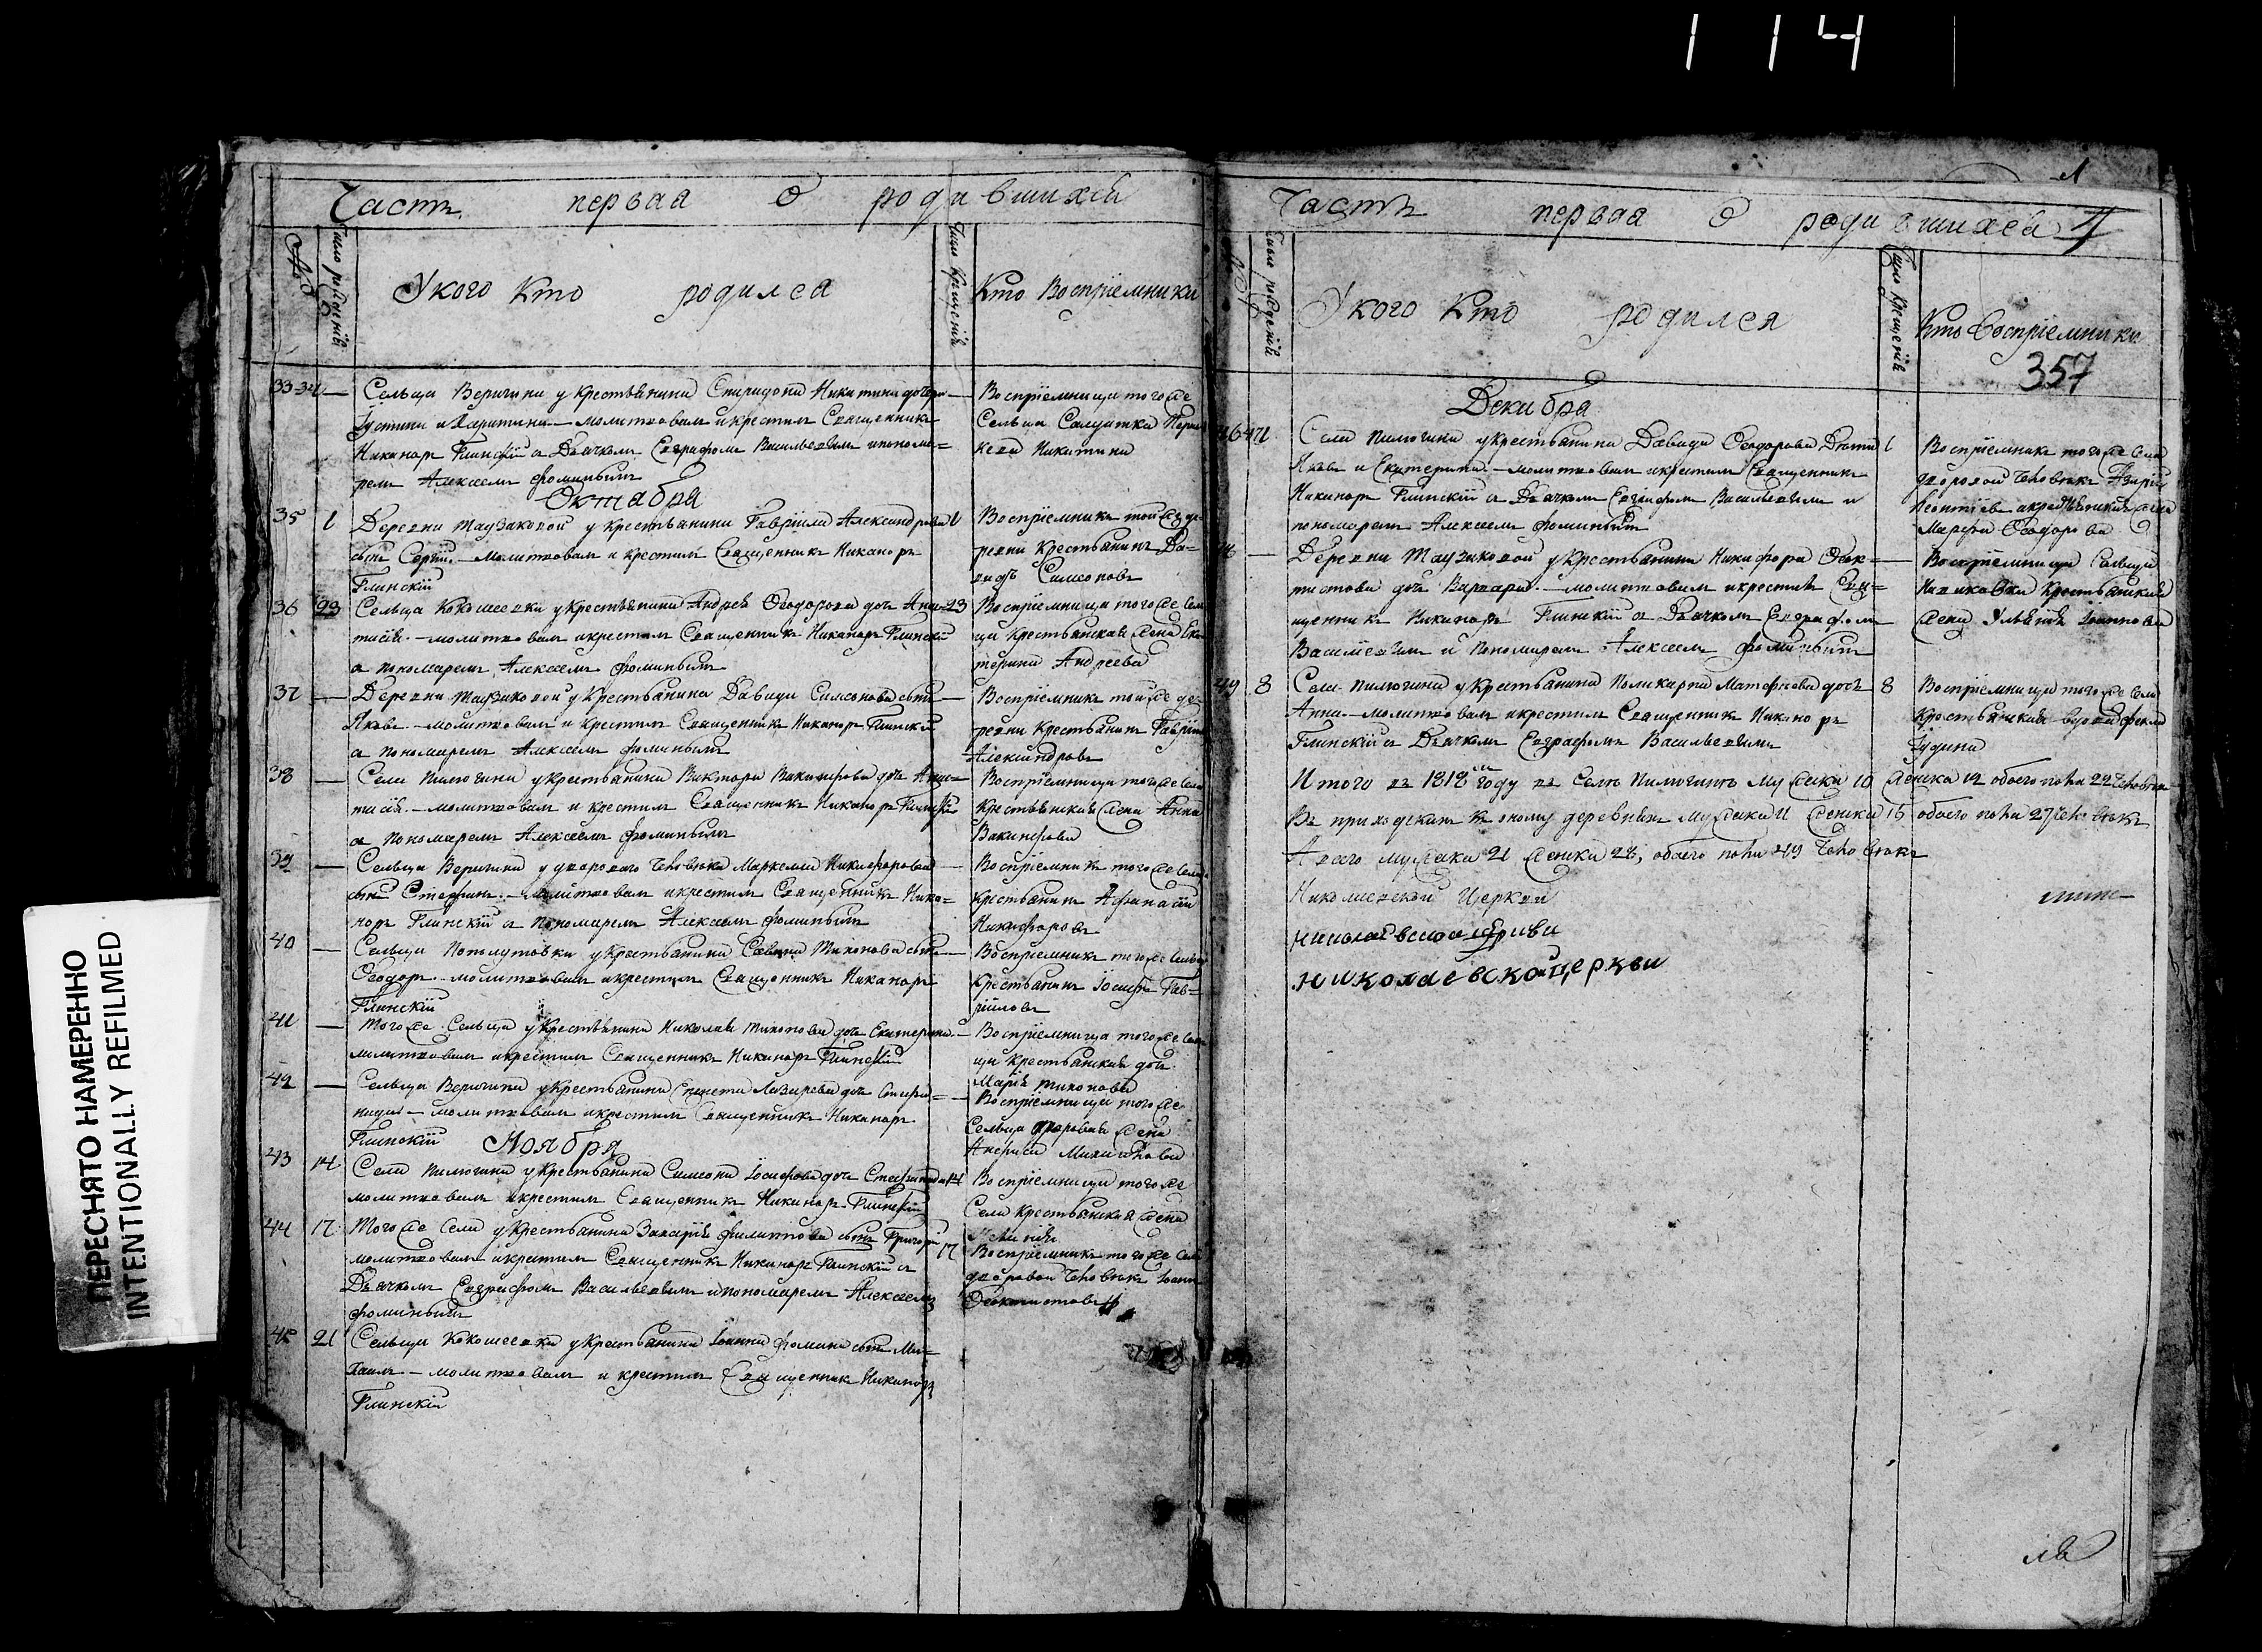 114
Часть первая о родившихся
№
Число рожденія
У кого кто родился
Число крещенія
Кто воспріемники
33-34 — Сельца Веригина у крестьянина Спиридона Никитина дочери —
Іустина и Харитина — молитвовалъ и крестилъ Священникъ
Никаноръ Глинскій съ Дьячкомъ Евграфомъ Васильевымъ и понома=
ремъ Алексеемъ Фоминымъ
Воспріемница того же
Сельца Солдатка
Никитина
Октября
35 1 Деревни Таузаковой у крестьянина Гавріила Александрова 1
сынъ Сергій. — Молитвовалъ и крестилъ Священникъ Никаноръ
Глинскій
Воспріемникъ той же де=
ревни Крестьянинъ Да=
видъ Симеоновъ
36 23 Сельца Кокошеевки у крестьянина Андрея Феодорова дочь Анас= 23
тасія. — молитвовалъ и крестилъ Священникъ Никаноръ Глинскій
съ пономаремъ Алексеемъ Фоминымъ
Воспріемница того же сель
ца Крестьянская жена Ека
терина Андреева
37 — Деревни Таузаковой у Крестьянина Давида Симеонова сынъ —
Яковъ — молитвовалъ и крестилъ Священникъ Никаноръ Глинскій
съ пономаремъ Алексеемъ Фоминымъ
Воспріемникъ той же де=
ревни Крестьянинъ Гавріилъ
Александровъ
38 — Села Пилюгина у крестьянина Виктора Вакинфова дочь Анас=
тасія. — молитвовалъ и крестилъ Священникъ Никаноръ Глинскій
съ пономаремъ Алексеемъ Фоминымъ
Воспріемница того же села
Крестьянская жена Анна
Вакинфова
39 — Сельца Веригина у двороваго человека Маркелла Никифорова —
сынъ Стефанъ. — молитвовалъ и крестилъ Священникъ Ника=
норъ Глинскій съ пономаремъ Алексеемъ Фоминымъ
Воспріемникъ того же сель
крестьянинъ Афанасій
Никифоровъ
40 — Сельца Потлутовки у крестьянина Саввы Тихонова сынъ —
Феодоръ — молитвовалъ и крестилъ Священникъ Никаноръ
Глинскій
Воспріемникъ того же сельца
Крестьянинъ Іосифъ Гав=
рііловъ
41 — Того же Сельца у крестьянина Николая Тихонова дочь Екатерина. —
молитвовалъ и крестилъ Священникъ Никаноръ Глинскій
Воспріемница того же сель
ца Крестьянская дочь
Марія Тихонова
42 — Сельца Веригина у крестьянина Лазарева дочь Стефа=
нида — молитвовалъ и крестилъ Священникъ Никаноръ
Глинскій
Воспріемница того же
Сельца дворовая жена
Анфиса Михайлова
Ноября
43 14 Села Пилюгина у крестьянина Симеона Іосифова дочь Стефанида 14
молитвовалъ и крестилъ Священникъ Никаноръ Глинскій
Воспріемница того же
Села крестьянская жена
44 17 Того же Села у Крестьянина Захарія Филиппова сынъ Григорій 17
молитвовалъ и крестилъ Священникъ Никаноръ Глинскій съ
Дьячкомъ Евграфомъ Васильевымъ и пономаремъ Алексеемъ
Фоминымъ
Воспріемникъ того же села
дворовой человекъ Іоаннъ
Феоктистовъ
45 21 Сельца Кокошеевки у крестьянина Іоанна Фомина сынъ Ми=
хаилъ — молитвовалъ и крестилъ Священникъ Никаноръ
Глинскій
Часть первая о родившихся
№
Число рожденія
У кого кто родился
Число крещенія
Кто воспріемники
357
Декабря
46 47 1 Села Пилюгина у крестьянина Давида Феодорова дети 1
Яковъ и Екатерина. — молитвовалъ и крестилъ Священникъ
Никаноръ Глинскій съ Дьячкомъ Евграфомъ Васильевымъ и
пономаремъ Алексеемъ Фоминымъ
Воспріемникъ того же села
дворовой человекъ Азарій
Леонтіевъ и крестьянская жена
Марфа Феодорова
48 — Деревни Таузаковой у Крестьянина Никифора Феок= —
тистова дочь Варвара. — молитвовалъ и крестилъ Свя=
щенникъ Никаноръ Глинскій съ Дьячкомъ Евграфомъ
Васильевымъ и пономаремъ Алексеемъ Фоминымъ
Воспріемница Сельца
Крестьянская
жена Ульянія Іоаннова
49 8 Села Пилюгина у крестьянина Поликарпа Матфеева дочь 8
Анна. — молитвовалъ и крестилъ Священникъ Никаноръ
Глинскій съ Дьячкомъ Евграфомъ Васильевымъ
Воспріемница того же села
Крестьянская вдова Фекла
Іудина
Итого въ 1818м году въ Селе Пилюгине мужска 10 женска 12 обоего пола 22 человека
Въ приходскихъ къ оному деревняхъ мужска 11 женска 16 обоего пола 27 человекъ
А всего мужска 21 женска 28, обоего пола 49 человекъ
Николаевской Церкви
Николаевской церкви
Николаевской церкви
ПЕРЕСНЯТО НАМЕРЕННО
INTENTIONALLY REFILMED